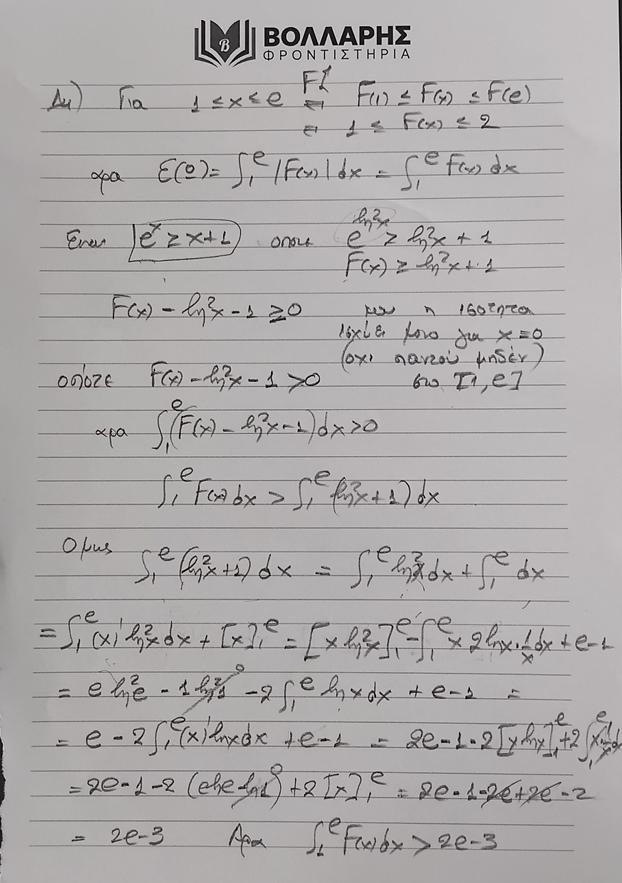 ΒΟΛΛΑΡΗΣ
ΦΡΟΝΤΙΣΤΗΡΙΑ
Δ4) Για 1 ≤ x ≤ e F↑ ⇔ F(1) ≤ F(x) ≤ F(e)
⇔ 1 ≤ F(x) ≤ 2
αρα E(Ω) = ∫₁^e |F(x)| dx = ∫₁^e F(x) dx
e^x ≥ x+1 οποτε e^{ln²x} ≥ ln²x + 1
F(x) ≥ ln²x + 1
F(x) - ln²x - 1 ≥ 0 η ισοτητα
ισχύει μονο για x=0
(οχι παντού μηδέν)
οπότε F(x) - ln²x - 1 > 0 στο [1, e]
αρα ∫₁^e (F(x) - ln²x - 1) dx > 0
∫₁^e F(x) dx > ∫₁^e (ln²x + 1) dx
Ομως ∫₁^e (ln²x + 1) dx = ∫₁^e ln²x dx + ∫₁^e dx
= ∫₁^e (x)' ln²x dx + [x]₁^e = [x ln²x]₁^e - ∫₁^e x 2lnx · 1/x dx + e-1
= e ln²e - 1 ln²1 0 - 2 ∫₁^e lnx dx + e-1 =
= e - 2 ∫₁^e (x)' lnx dx + e-1 = 2e-1-2 [x lnx]₁^e + 2 ∫₁^e x 1/x dx
= 2e-1-2 (elne - ln1 0) + 2 [x]₁^e = 2e-1-2e+2e-2
= 2e-3 Αρα ∫₁^e F(x) dx > 2e-3